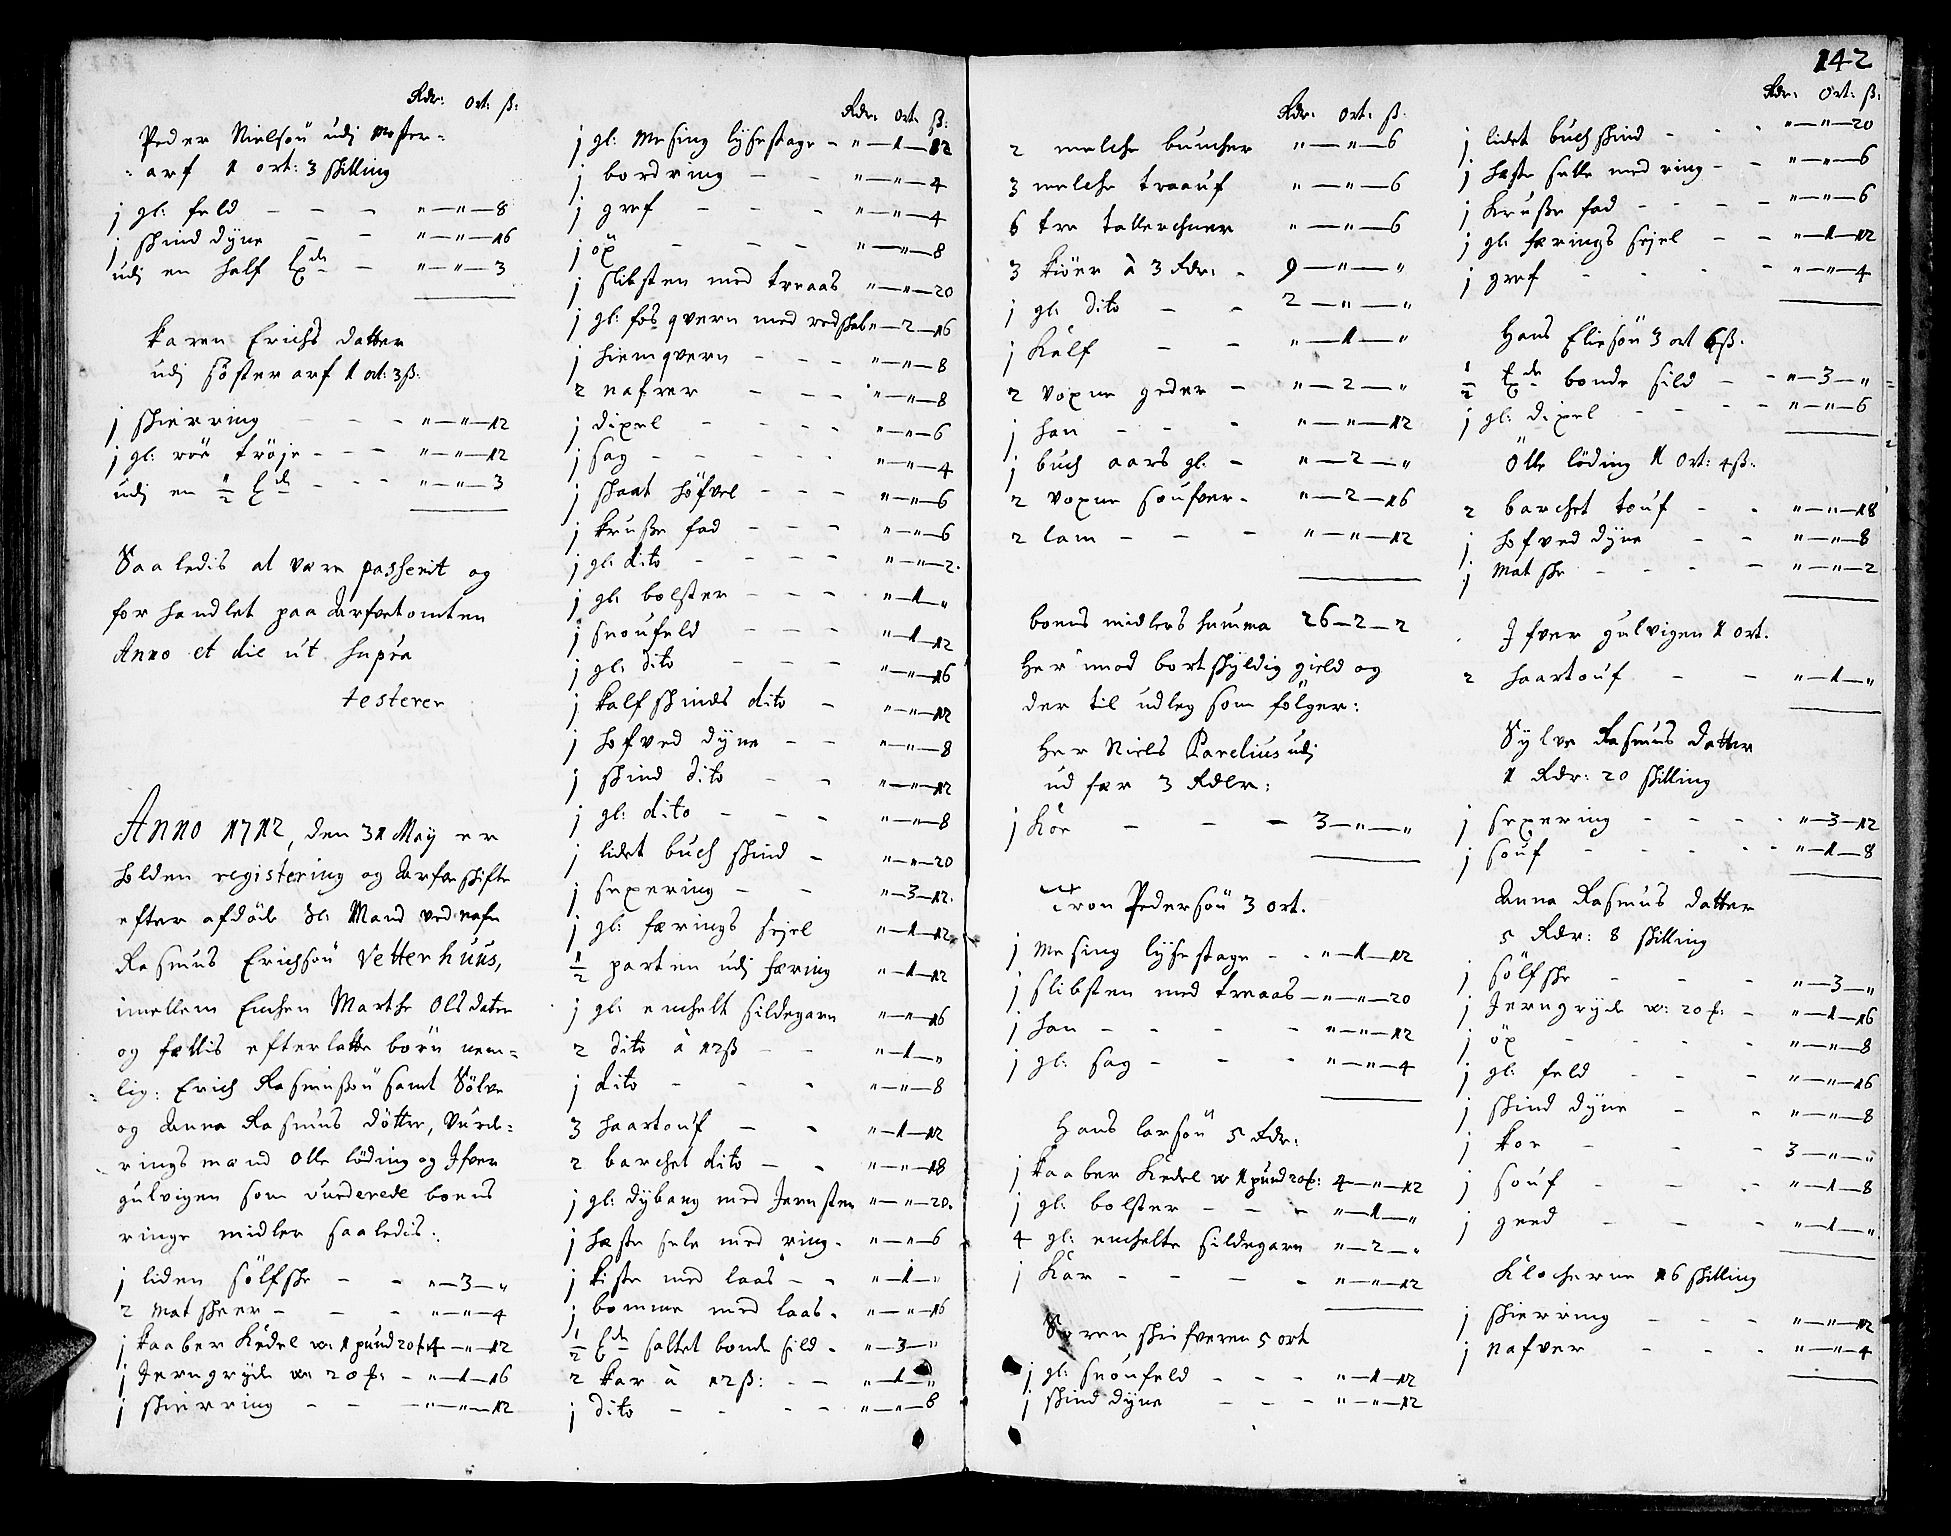 Rdr: Ort: ß:
Peder Nielsøn udj Moster=
=arf 1 ort: 3 skilling
j gl: feld - - - " — " — 8
j skind dyne - - " — " — 16
udj en half Xde - " — " — 3
Karen Erichs datter
udj søster arf 1 ort: 3 ß:
j skierring - - - " — " — 12
j gl: røe trøje - - - " — " — 12
udj en ½ Xde - - - " — " — 3
Saaledis at være passerit og
forhandlet paa Arfvetomten
Anno et die ut supra
testerer
Anno 1712, den 31 May er
holden registering og Arfveskifte
efter afdøde Sl: Mand ved nafn
Rasmus Erichsøn Vetterhuus,
imellem Enchen Marthe Olsdater
og fællis efterlatte børn nem=
lig: Erich Rasmussøn samt Sølve
og Anna Rasmus døtter, Vurde=
rings mænd Olle løding og Ifver
gulvigen som vurderede boens
ringe midler saaledis:
j liden sølfske - - " — 3 — "
2 mat skeer - - - " — " — 4
j kaaber Kedel w: 1 pund 20 f: 4 — " — 12
j Jerngryde w: 20 f: - " — 1 — 16
j skierring - - - " — " — 12
Rdr: Ort: ß:
j gl: Mesing lysestage - " — 1 — 12
j bordring - - " — " — 4
j gref - - - " — " — 4
j öx - - - " — " — 8
j slibsten med træaas " — " — 20
j gl: fos qvern med redskab " — 2 — 16
j hiemqvern - - - " — " — 8
2 nafver - - - " — " — 8
j dixel - - - " — " — 6
j sag - - - - " — " — 4
j skaat høfvel - - - " — " — 6
j kruße fad - - - " — " — 6
j gl: dito - - - " — " — 2
j gl: bolster - - - " — 1 — "
j snoufeld - - - " — 1 — 12
j gl: dito - - - " — " — 16
j kalfskinds dito - " — " — 12
j hofved dyne - - " — " — 8
j skind dito - - " — " — 12
j gl: dito - - - " — " — 8
j lidet buch skind - " — " — 20
j sexering - - " — 3 — 12
j gl: færings sejel " — 1 — 12
½ parten udj færing " — 1 — 12
j gl: enchelt sildegarn " — " — 16
2 dito à 12 ß - - " — 1 — "
j dito - - - " — " — 8
3 haartouf - - " — 1 — 12
2 barchet dito - - " — " — 18
j gl: dybang med Jernsten " — " — 20
j hæste sele med ring - " — " — 6
j kiste med laas - - " — 1 — "
j bomme med laas - " — " — 16
½ Xde saltet bonde sild - " — 3 — "
2 kar à 12 ß: - - " — 1 — "
j dito - - - - " — " — 8
142
Rdr: Ort: ß:
2 melche buncher " — " — 6
3 melche traauf " — " — 6
6 tre tallerchner " — " — 6
3 kiöer à 3 Rdr: - 9 — " — "
j gl: dito - - 2 — " — "
j Kalf - - " — 1 — "
2 voxne geder - " — 2 — "
j han - - - " — " — 12
j buch aars gl: - " — 2 — "
2 voxne soufver - " — 2 — 16
2 lam - - - " — " — 12
boens midlers summa 26 — 2 — 2
Her imod bortskyldig gield og
der til udleg som følger:
Her Niels Parelius udj
ud fær 3 Rdlr:
j Kör - - - 3 — " — "
Tron Pedersøn 3 ort.
j Mesing lysestage - - " — 1 — 12
j slibsten med træaas - " — " — 20
j han - - - - " — " — 12
j gl: sag - - - " — " — 4
Hans larsøn 5 Rdr:
j kaaber Kedel w: 1 pund 20 f: 4 — " — 12
j gl: bolster - - - " — 1 — "
4 gl: enchelte sildegarn " — 2 — "
j Kar - - - - " — " — 12
Søren skrifveren 5 ort
j gl: snoufeld - - - " — 1 — 12
j skind dyne - - - " — " — 12
Rdr: Ort: ß:
j lidet buch skind - - - " — " — 20
j hæste selle med ring - - " — " — 6
j Kruße fad - - - - " — " — 6
j gl: færings sejel - - " — 1 — 12
j gref - - - - " — " — 4
Hans Eliesøn 3 ort 6 ß.
½ Xde bonde sild - - " — 3 — "
j gl: dixel - - - - " — " — 6
Ölle löding 1 ort: 4 ß.
2 barchet touf - - " — " — 18
j hofved dyne - - " — " — 8
j Mat ske - - - - " — " — 2
Ifver gulvigen 1 ort.
2 haartouf - - " — 1 — "
Sylve Rasmus datter
1 Rdr: 20 skilling
j sexering - - - - " — 3 — 12
j souf - - - - " — 1 — 8
Anna Rasmus datter
5 Rdr: 8 skilling
j sölfske - - - " — 3 — "
j Jerngryde w: 20 f: - " — 1 — 16
j öx - - - - " — " — 8
j gl: feld - - - " — " — 16
j skind dyne - - " — " — 8
j kor - - - 3 — " — "
j souf - - - " — 1 — 8
j geed - - - " — 1 — "
Klocheren 16 skilling
j skierring - - - " — " — 12
j nafver - - - " — " — 4